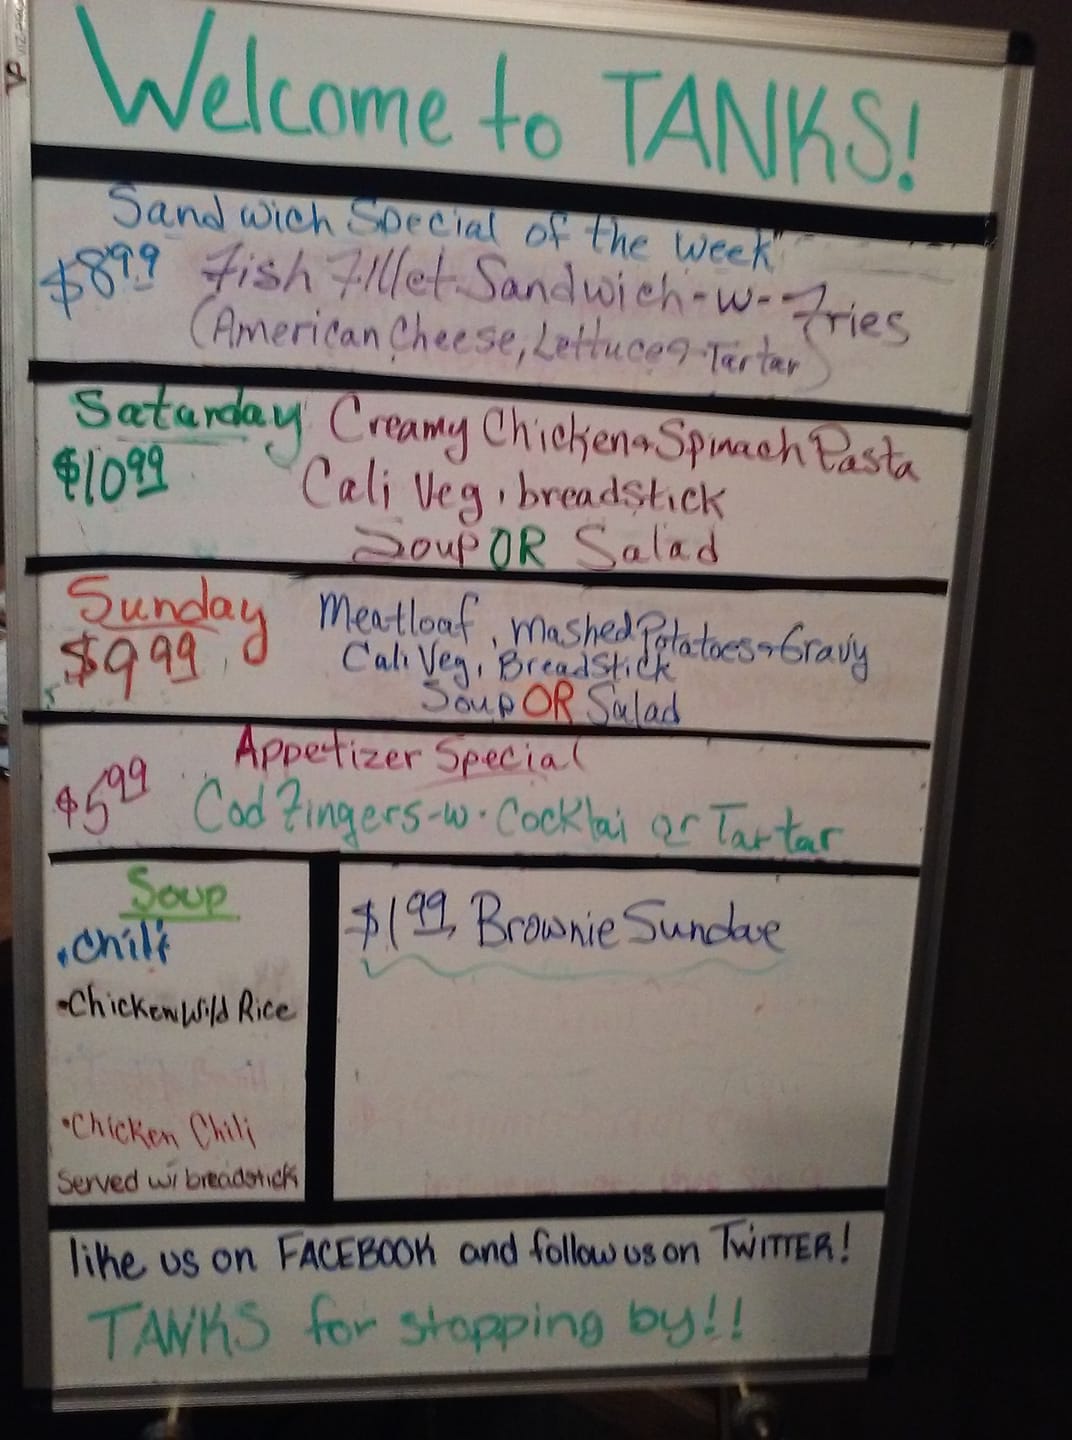 Welcome to TANKS!
Sandwich Special of the week"
$8.99 Fish Fillet Sandwich-w-Fries
(American Cheese, Lettuce & Tartar)
Saturday Creamy Chicken & Spinach Pasta
$10.99 Cali Veg, breadstick
Soup OR Salad
Sunday Meatloaf, Mashed Potatoes & Gravy
$9.99 Cali Veg, Breadstick
Soup OR Salad
Appetizer Special
$5.99 Cod Fingers-w-Cocktai or Tartar
Soup
•Chili
•Chicken Wild Rice
•Chicken Chili
Served w/ breadstick
$1.99, Brownie Sundae
like us on FACEBOOK and follow us on TWITTER!
TANKS for stopping by!!